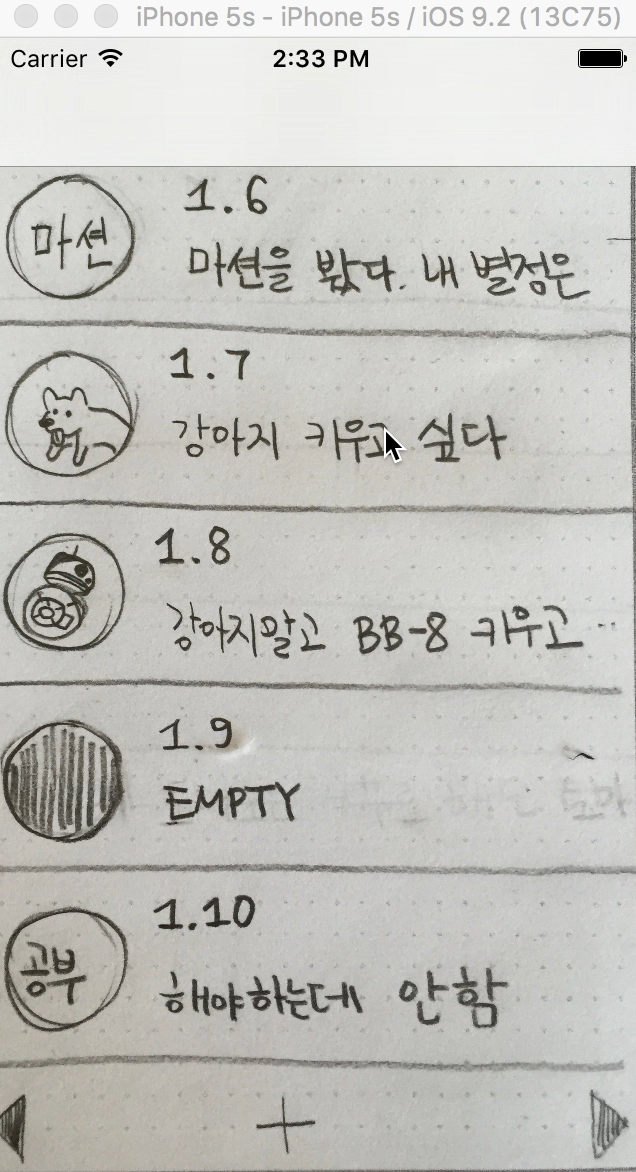 iPhone 5s - iPhone 5s / iOS 9.2 (13C75)
Carrier 2:33 PM
마션
1.6
마션을 봤다. 내 별점은
1.7
강아지 키우고 싶다
1.8
강아지말고 BB-8 키우고 ..
1.9
EMPTY
공부
1.10
해야하는데 안함
+